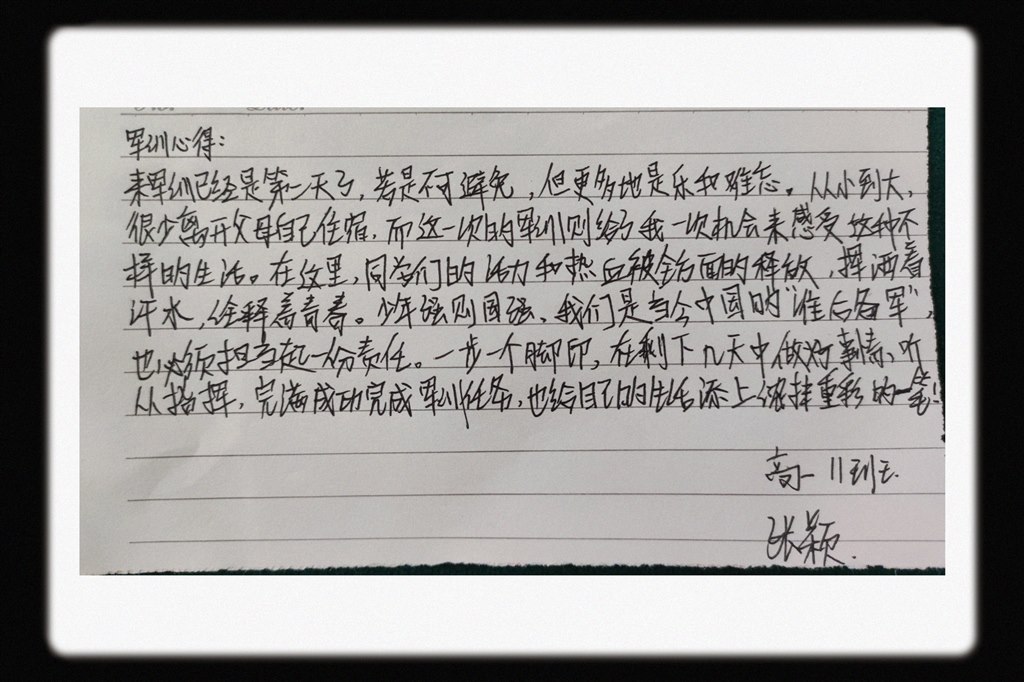 军训心得：
来军训已经是第二天了，苦是不可避免，但更多地是乐和难忘。从小到大，
很少离开父母自己住宿，而这一次的军训则给了我一次机会来感受这种不
样的生活。在这里，同学们的活力和热血被全方面的释放，挥洒着
汗水，诠释着青春。少年强则国强，我们是当今中国的“准后备军”，
也必须担当起一份责任。一步一个脚印，在剩下几天中做好事情、听
从指挥，完满成功完成军训任务，也给自己的生活添上浓抹重彩的一笔！
高一 11班
张颖.